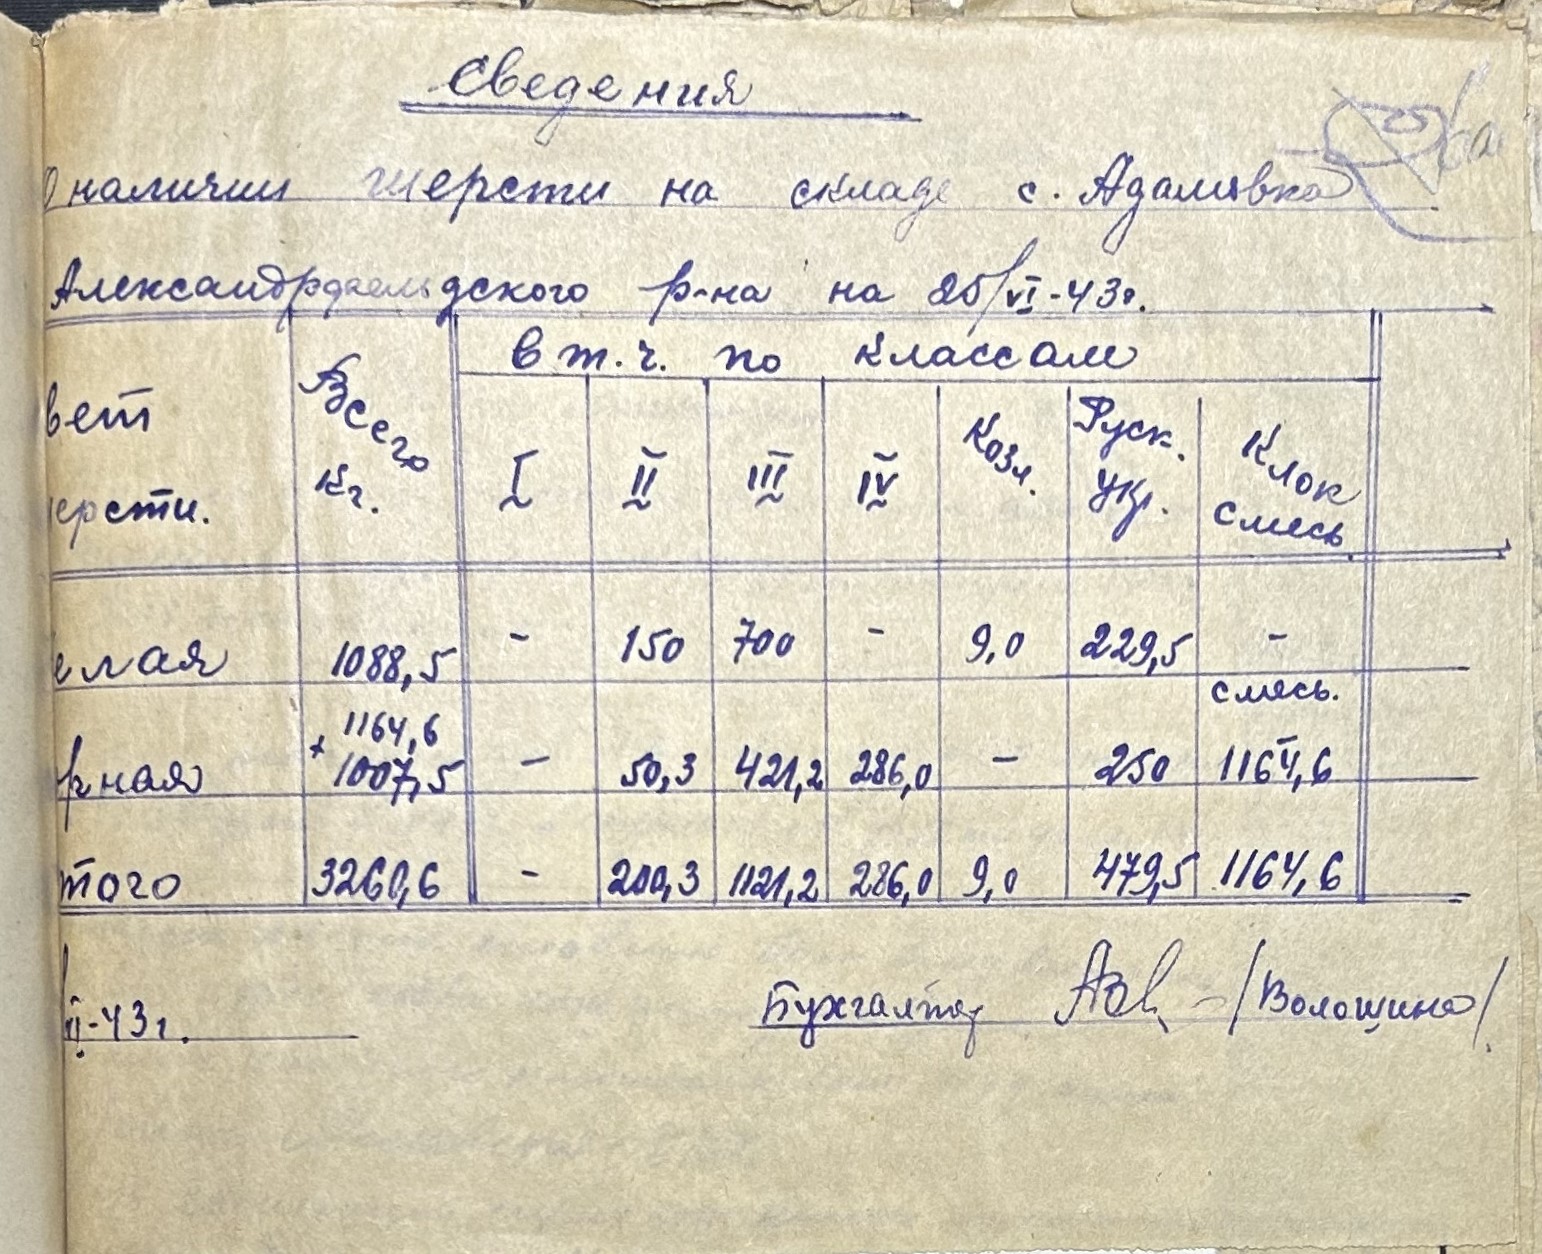 Сведения
О наличии шерсти на складе с. Адамовка
Александрдаельдского р-на на 25/VI-43г.
вет шерсти. Всего кг. в т.ч. по классам
I II III IV Козл. Руск. укр. Клок смесь
елая 1088,5 - 150 700 - 9,0 229,5 -
смесь.
+ 1164,6
рная 1007,5 - 50,3 421,2 286,0 - 250 1164,6
того 3260,6 - 200,3 1121,2 286,0 9,0 479,5 1164,6
VI-43г. Бухгалтер /Волошина/.